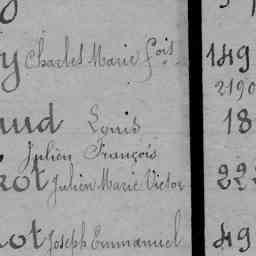 y Charles Marie fois 149
2190
aud Louis 18
Julien François
rot Julien Marie Victor 222
ot Joseph Emmanuel 49